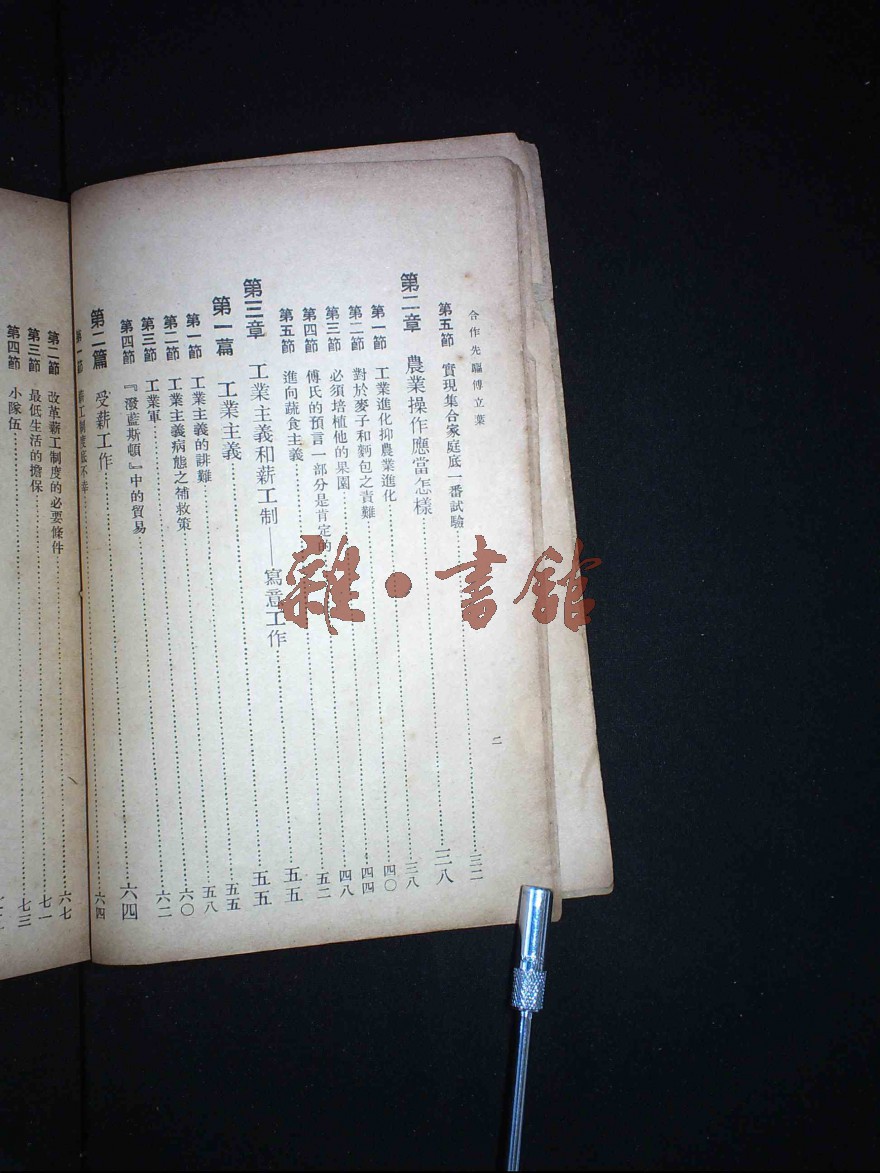 合作先驅傅立葉
二
第五節 實現集合家庭底一番試驗……三二
第二章 農業操作應當怎樣……三八
第一節 工業進化抑農業進化……三八
第二節 對於麥子和麪包之責難……四〇
第三節 必須培植他的果園……四四
第四節 傅氏的預言一部分是肯定的……四八
第五節 進向蔬食主義……五二
第三章 工業主義和薪工制——寫意工作……五五
第一篇 工業主義……五五
第一節 工業主義的誹難……五五
第二節 工業主義病態之補救策……五八
第三節 工業軍……六〇
第四節 『潑藍斯頓』中的貿易……六二
第二篇 受薪工作……六四
第一節 薪工制度底不幸……六四
第二節 改革薪工制度的必要條件……六七
第三節 最低生活的擔保……七一
第四節 小隊伍……七三
雜·書舘